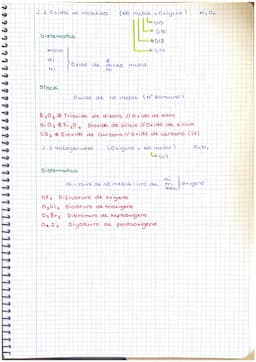 2.2 Óxidos no metálicos (No metal + Oxígeno) N₂Oₓ
G17
G16
G15
G14
Sistemática
mono
di
tri
Óxido de di-no metal
Stock
Óxido de no metal (Nº Romano)
B₂O₃ → Trióxido de diboro // Óxido de boro
SiO₂ → Dióxido de silicio // Óxido de silicio
CO₂ → Dióxido de carbono // Óxido de carbono (IV)
2.3 Halogenuros (Oxígeno + No metal)
G17
Sistemática
di-raíz de no metal-uro de oxígeno
OF₂ Difluoruro de oxígeno
O₃Cl₂ Dicloruro de trioxígeno
O₇Br₂ Dibromuro de heptaoxígeno
O₅I₂ Diyoduro de pentaoxígeno